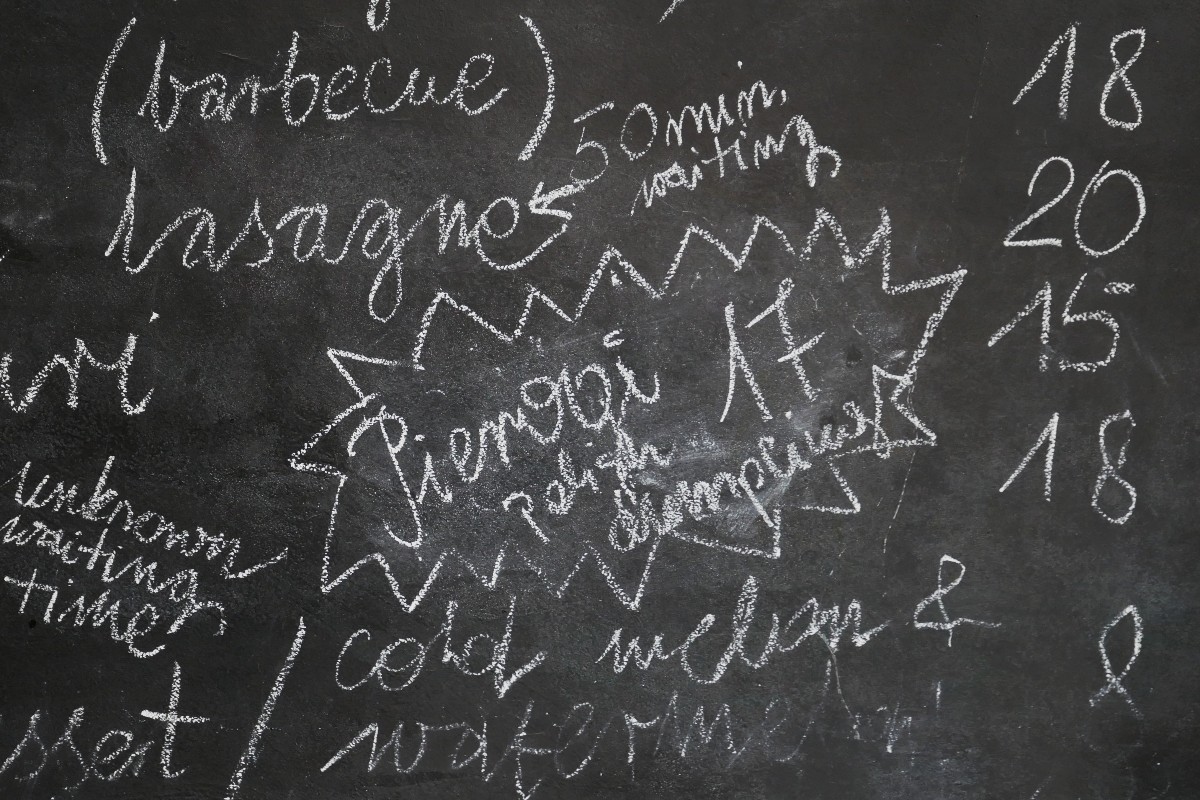 (barbecue) 18
50 min.
waiting
lasagne 20
15
Pierogi 17
polish
dumplings
18
unknown
waiting
time
cold melon & 8
/ waterme